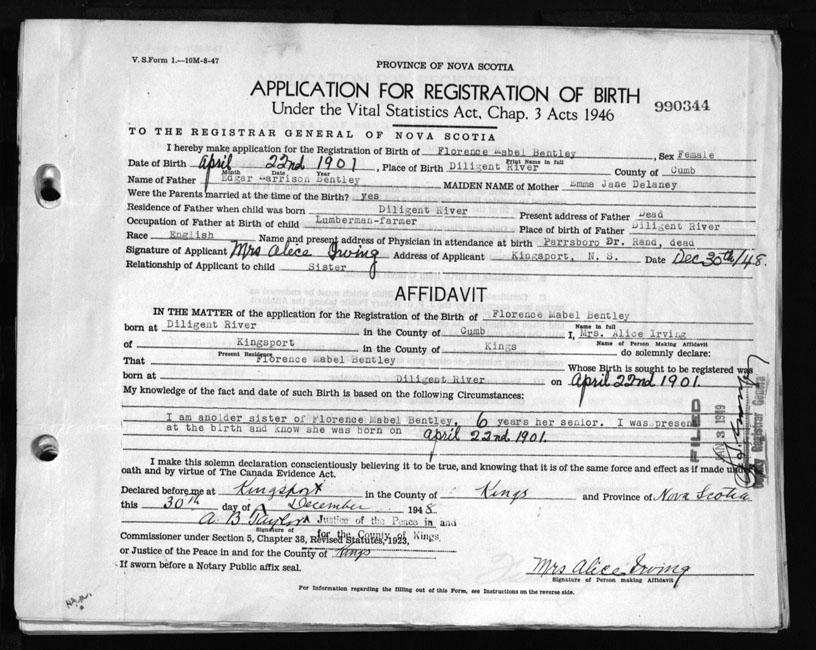 V. S. Form 1.—10M-8-47
PROVINCE OF NOVA SCOTIA
APPLICATION FOR REGISTRATION OF BIRTH
Under the Vital Statistics Act, Chap. 3 Acts 1946
990344
TO THE REGISTRAR GENERAL OF NOVA SCOTIA
I hereby make application for the Registration of Birth of Florence Mabel Bentley, Sex Female
Print Name in full
Date of Birth April 22nd 1901, Place of Birth Diligent River County of Cumb
Month Date Year
Name of Father Edgar Harrison Bentley MAIDEN NAME of Mother Emma Jane Delaney
Were the Parents married at the time of Birth? yes
Residence of Father when child was born Diligent River Present address of Father Dead
Occupation of Father at Birth of child Lumberman-farmer Place of birth of Father Diligent River
Race English Name and present address of Physician in attendance at birth Parrsboro Dr. Rand, dead
Signature of Applicant Mrs Alice Irving Address of Applicant Kingsport, N. S. Date Dec 30th/48.
Relationship of Applicant to child Sister
AFFIDAVIT
IN THE MATTER of the application for the Registration of the Birth of Florence Mabel Bentley
Name in full
born at Diligent River in the County of Cumb I, Mrs. Alice Irving
Name of Person Making Affidavit
of Kingsport in the County of Kings do solemnly declare:
Present Residence
That Florence Mabel Bentley Whose Birth is sought to be registered was
born at Diligent River on April 22nd 1901.
My knowledge of the fact and date of such Birth is based on the following Circumstances:
I am anolder sister of Florence Mabel Bentley, 6 years her senior. I was present
at the birth and know she was born on April 22nd 1901.
FILED
JAN 3 1949
Deputy Registrar General
I make this solemn declaration conscientiously believing it to be true, and knowing that it is of the same force and effect as if made under
oath and by virtue of The Canada Evidence Act.
Declared before me at Kingsport in the County of Kings and Province of Nova Scotia
this 30th day of December 1948
A B Taylor Justice of the Peace in and
Signature of
for the County of Kings
Commissioner under Section 5, Chapter 38, Revised Statutes, 1923,
or Justice of the Peace in and for the County of Kings
If sworn before a Notary Public affix seal.
Mrs Alice Irving
Signature of Person making Affidavit
For Information regarding the filling out of this Form, see Instructions on the reverse side.